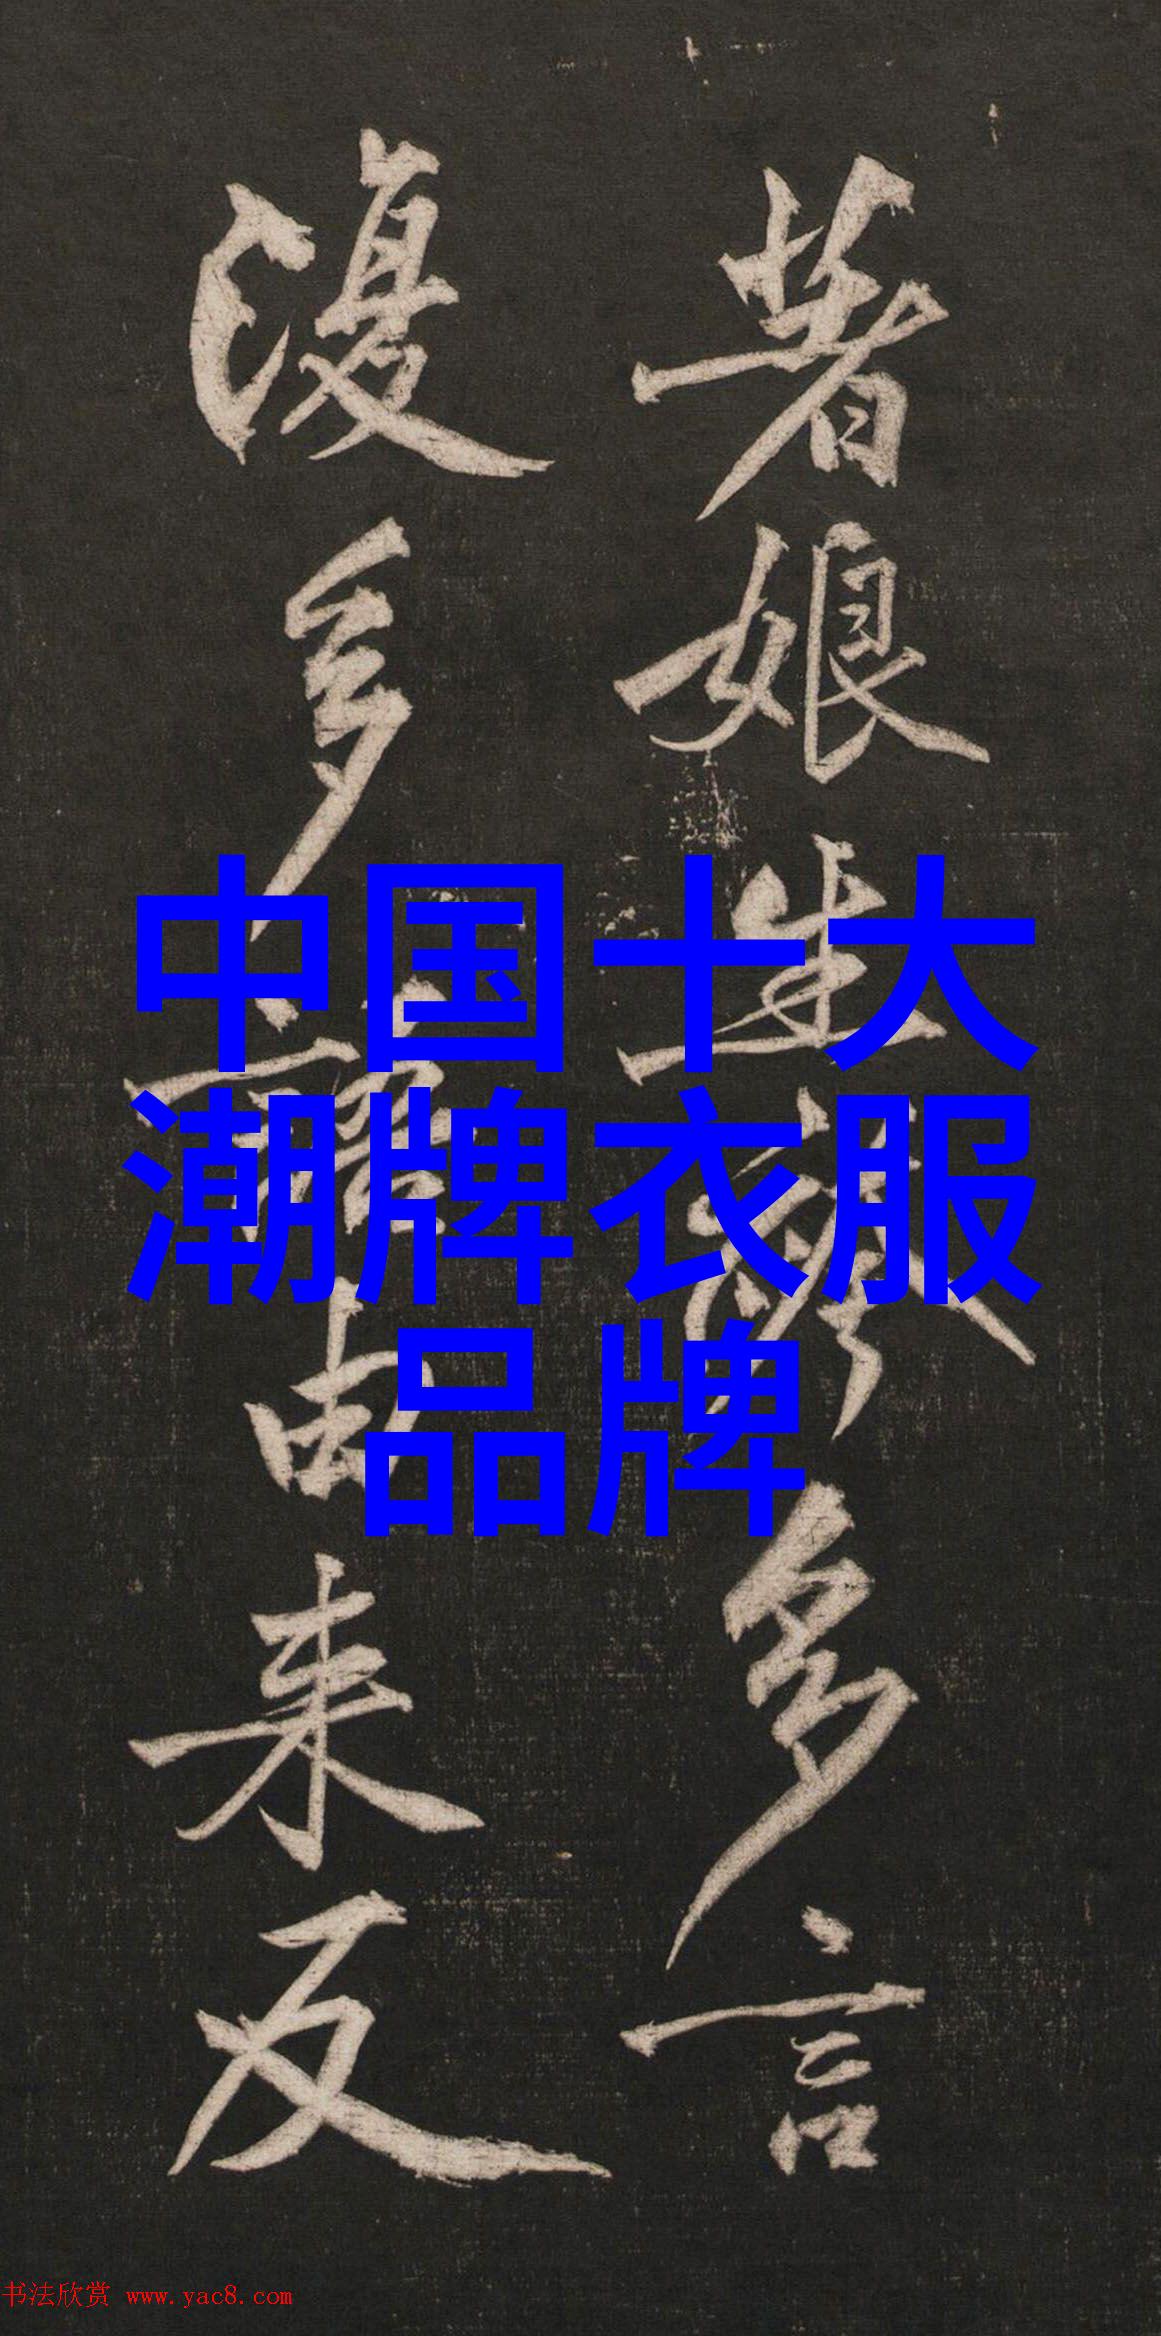 著娘生袴多言
復多語由来反
中国十大
潮牌衣服
品牌
书法欣赏 www.yac8.com